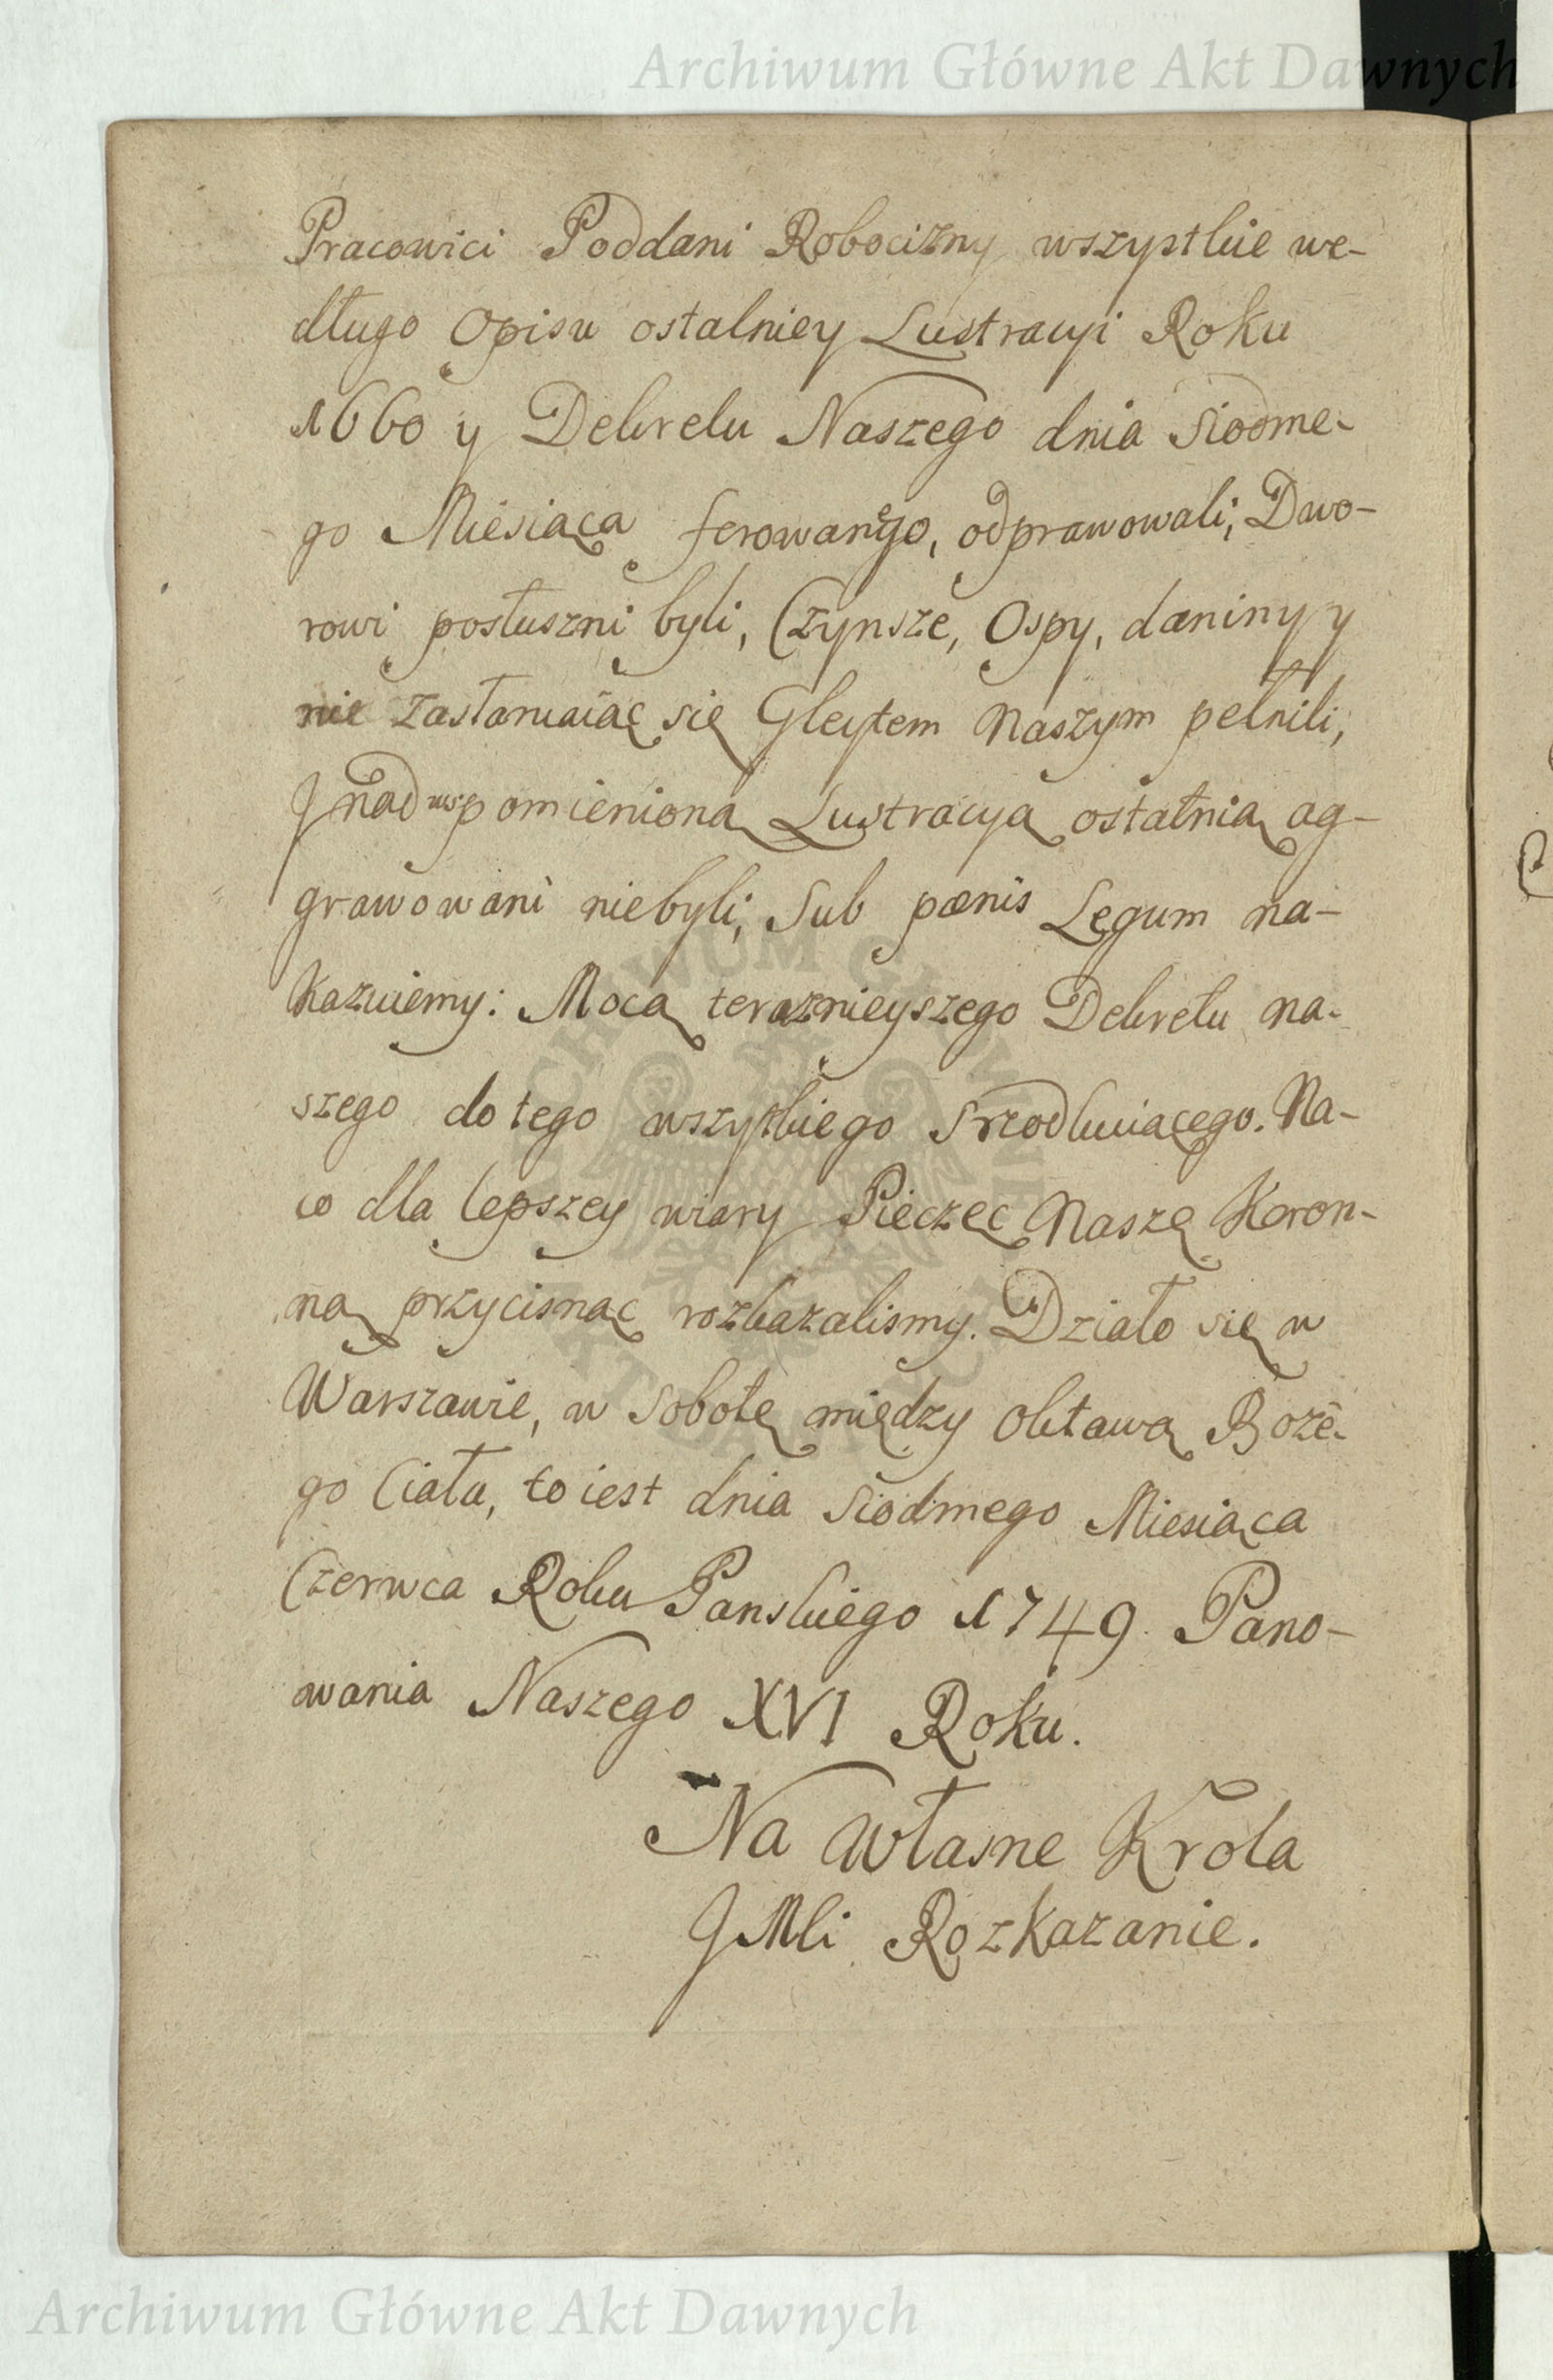 Archiwum Główne Akt Dawnych
Pracowici Poddani Robocizny wszystkie we-
długo Opisu ostatniey Lustracyi Roku
1660 y Dekretu Naszego dnia Siodme-
go Miesiąca ferowanego, odprawowali, Dwo-
rowi posłuszni byli, Czynsze, Ospy, daniny y
nie zasłaniaiąc się Gleytem Naszym pełnili,
J nad wspomienioną Lustracyą ostatnią ag-
grawowani niebyli, Sub pœnis Legum na-
kazuiemy: Mocą teraznieyszego Dekretu na-
szego do tego wszystkiego Srzodkuiącego. Na-
co dla lepszey wiary Pieczęc Naszę Koron-
ną przycisnąc rozkazalismy. Działo się w
Warszawie, w Sobotę między Oktawą Boże-
go Ciała, to iest dnia Siodmego Miesiąca
Czerwca Roku Panskiego 1749. Pano-
wania Naszego XVI Roku.
Na Własne Krola
JMci Rozkazanie.
ARCHIWUM GŁÓWNE AKT DAWNYCH
Archiwum Główne Akt Dawnych